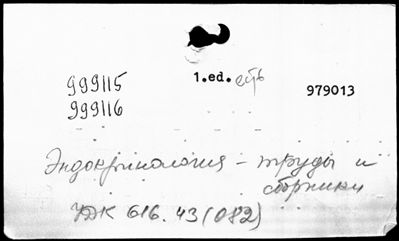 999115
1.ed. есть
979013
999116
Эндокринология – труды и
сборники
УДК 616.43(082)